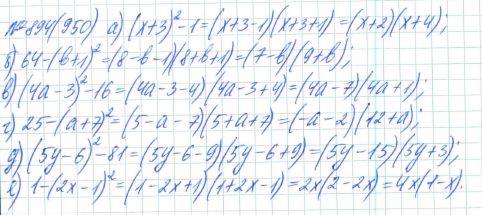 №894(950) а) (x+3)²-1=(x+3-1)(x+3+1)=(x+2)(x+4);
б) 64-(b+1)²=(8-b-1)(8+b+1)=(7-b)(9+b);
в) (4a-3)²-16=(4a-3-4)(4a-3+4)=(4a-7)(4a+1);
г) 25-(a+7)²=(5-a-7)(5+a+7)=(-a-2)(12+a);
д) (5y-6)²-81=(5y-6-9)(5y-6+9)=(5y-15)(5y+3);
е) 1-(2x-1)²=(1-2x+1)(1+2x-1)=2x(2-2x)=4x(1-x).